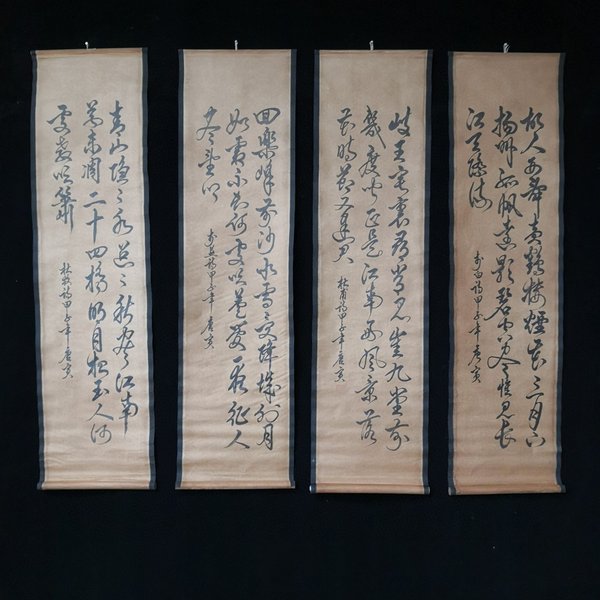 故人西辭黃鶴樓煙花三月下
揚州孤帆遠影碧空盡惟見長
江天際流
李白詩甲子年唐寅
岐王宅裏尋常見崔九堂前
幾度聞正是江南好風景落
花時節又逢君
杜甫詩甲子年唐寅
回樂峰前沙似雪受降城外月
如霜不知何處吹蘆管一夜征人
盡望鄉
李益詩甲子年唐寅
青山隱隱水迢迢秋盡江南
草未凋二十四橋明月夜玉人何
處教吹簫
杜牧詩甲子年唐寅